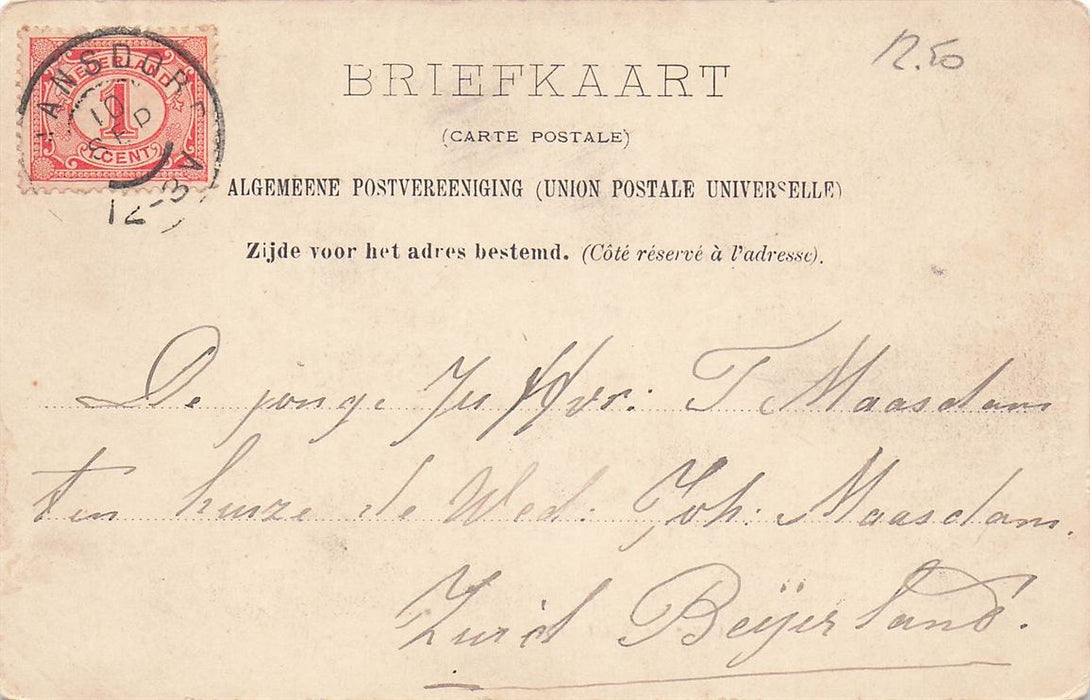 12.50
BRIEFKAART
(CARTE POSTALE)
ALGEMEENE POSTVEREENIGING (UNION POSTALE UNIVERSELLE)
Zijde voor het adres bestemd. (Côté réservé à l'adresse).
NEDERLAND
1
CENT
ANSDORF
10
SEP
12-3
De jonge Juffvr: T Maasdam
ten huize de Wed: Joh: Maasdam.
Zuid Beijerland.